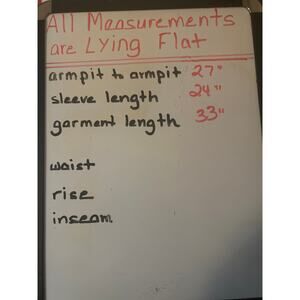 All Measurements
are Lying Flat
armpit to armpit 27"
sleeve length 24"
garment length 33"
waist
rise
inseam